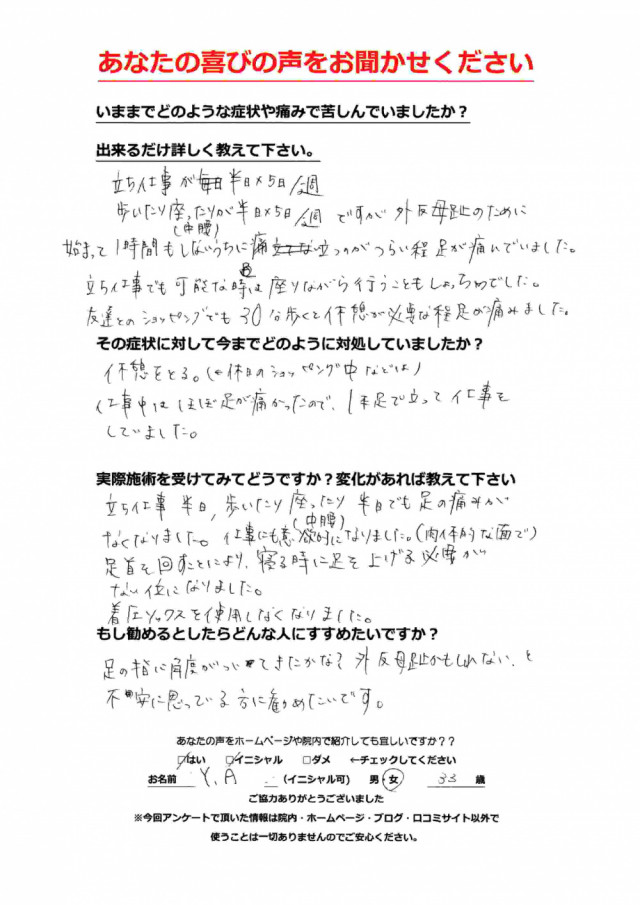 あなたの喜びの声をお聞かせください
いままでどのような症状や痛みで苦しんでいましたか？
出来るだけ詳しく教えて下さい。
立ち仕事が毎日半日×5日/週
歩いたり座ったりが半日×5日/週 ですが外反母趾のために
(中腰)
始まって1時間もしないうちに痛立つのがつらい程足が痛んでいました。
立ち仕事でも可能な時は座りながら行うこともしょっちゅうでした。
友達とのショッピングでも30分歩くと休憩が必要な程足が痛みました。
その症状に対して今までどのように対処していましたか？
休憩をとる。(←休日のショッピング中などは)
仕事中はほぼ足が痛かったので、1本足で立って仕事を
していました。
実際施術を受けてみてどうですか？変化があれば教えて下さい
立ち仕事半日、歩いたり座ったり半日でも足の痛みが
(中腰)
なくなりました。仕事にも意欲的になりました。(肉体的な面で)
足首を回すことにより、寝る時に足を上げる必要が
ない位になりました。
着圧ソックスを使用しなくなりました。
もし勧めるとしたらどんな人にすすめたいですか？
足の指に角度がついてきたかな？外反母趾かもしれない、と
不安に思っている方に勧めたいです。
あなたの声をホームページや院内で紹介しても宜しいですか？？
☑はい ☑イニシャル □ダメ ←チェックしてください
お名前 Y.A (イニシャル可) 男・女 33 歳
ご協力ありがとうございました
※今回アンケートで頂いた情報は院内・ホームページ・ブログ・口コミサイト以外で
使うことは一切ありませんのでご安心ください。